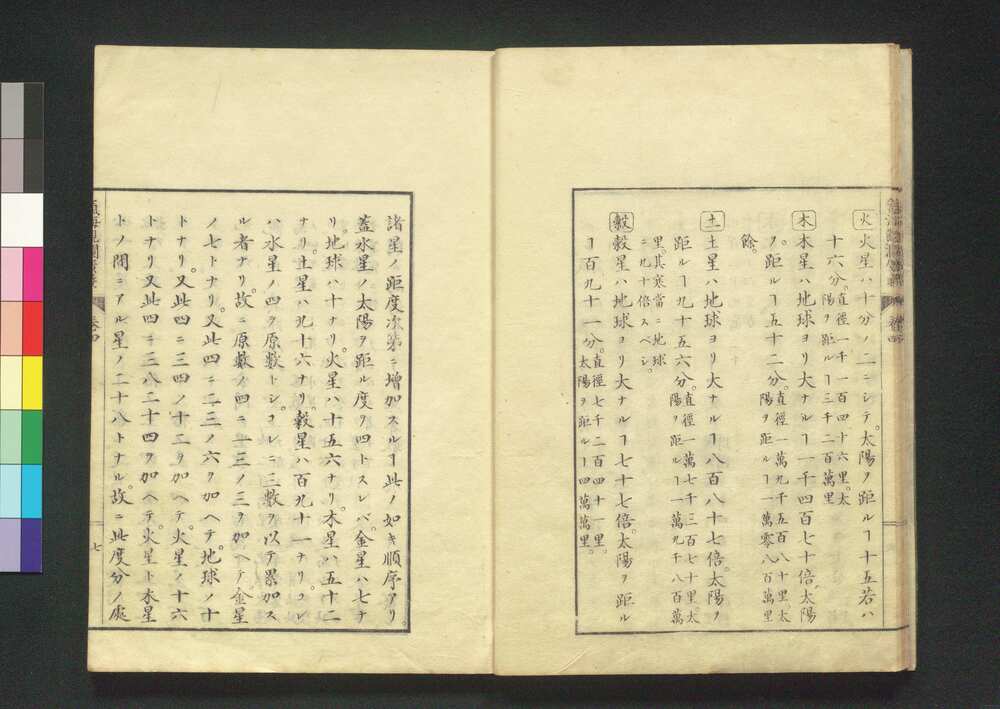 火 火星ハ十分ノ二ニシテ。太陽ヲ距ルヿ十五若ハ
十六分。直徑一千一百四十六里。太
陽ヲ距ルヿ三千二百萬里
木 木星ハ地球ヨリ大ナルヿ一千四百七十倍。太陽
ヲ距ルヿ五十二分。直徑一萬九千五百八十里。太
陽ヲ距ルヿ一萬零八百萬里
餘。
土 土星ハ地球ヨリ大ナルヿ八百八十七倍。太陽ヲ
距ルヿ九十五六分。直徑一萬七千三百七十里。太
陽ヲ距ルヿ一萬九千八百萬
里。其寒當ニ地球
ニ九十倍スベシ。
穀 穀星ハ地球ヨリ大ナルヿ七十七倍。太陽ヲ距ル
ヿ一百九十一分。直徑七千二百四十一里。
太陽ヲ距ルヿ四萬萬里。
諸星ノ距度次第ニ增加スルヿ此ノ如キ順序アリ。
蓋水星ノ太陽ヲ距ル度ヲ四トスレバ。金星ハ七ナ
リ。地球ハ十ナリ。火星ハ十五六ナリ。木星ハ五十二
ナリ。土星ハ九十六ナリ。穀星ハ百九十一ナリ。コレ
ハ水星ノ四ヲ原數トシ。コレニ三數ヲ以テ累加ス
ル者ナリ。故ニ原數ノ四ニ一三ノ三ヲ加ヘテ金星
ノ七トナリ。又此四ニ二三ノ六ヲ加ヘテ。地球ノ十
トナリ。又此四ニ三四ノ十二ヲ加ヘテ。火星ノ十六
トナリ又此四ニ三八二十四ヲ加ヘテ。火星ト木星
トノ間ニアル星ノ二十八トナル。故ニ此度分ノ處
卷四
七